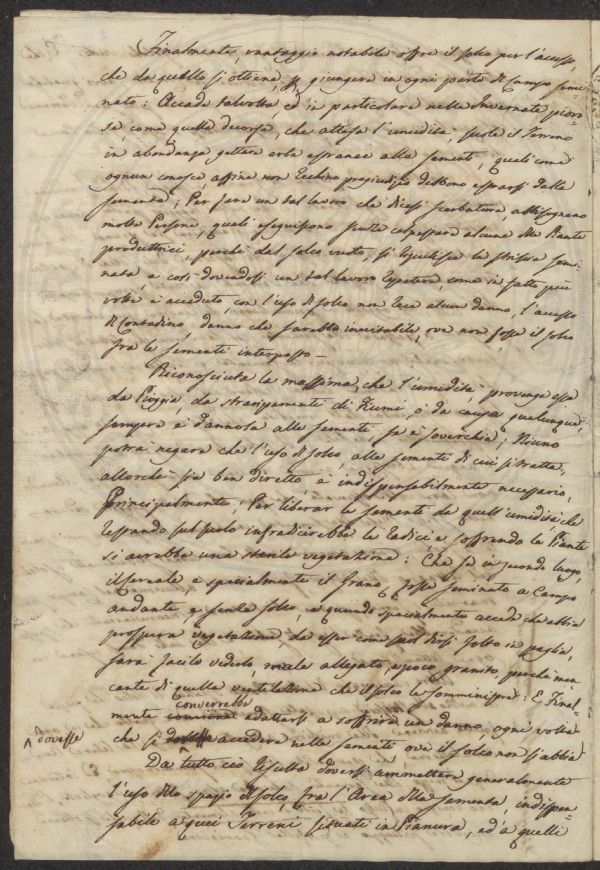 Finalmente, vantaggio notabile offre il solco per l'accesso,
che da quello si ottiene, giungere in ogni parte di Campo semi-
nato: Accade talvolta, ed in particolare nelle Invernate piovo-
se, come quella decorsa, che attesa l'umidità, suole il Terreno
in abondanza gettare erbe estranee alle sementi, quali come
ognun conosce affine non rechino pregiudizio debbono esparsi dalla
sementa; Per fare un tal lavoro che diresi abbisognano
molte Persone, quali eseguissono senza calpestare alcuna delle Piante
produttrici, perchè dal solco vuoto, si la striscia semi-
nata, e così dovendosi un tal lavoro repetere, come in fatto più
volte è accaduto, con l'uso di solco non reca alcun danno, l'accesso
di Contadino, danno che sarebbe inevitabile, ove non fosse il solco
fra le sementi interposto —
Riconosciuta la massima, che l'umidità, provenga essa
da Pioggie, da straripamente di Fiumi, ò da causa qualunque,
sempre è dannosa alle sementi se è soverchia; Niuno
potrà negare che l'uso di solco, alle sementi di cui si tratta,
allorchè sia ben diretto è indispensabilmente necessario,
Principalmente; Per liberar le sementi da quell'umidità che
restando sul suolo infradicirebbe le radici e soffrendo le Piante
si avrebbe una sterile vegetazione: Che se in secondo luogo,
il cereale e specialmente il grano, fosse seminato a Campo
andante, e senza solco, e quando specialmente accade che abbia
prospera vegetazione, da esser come suol dirsi folto in paglia,
sarà facile vederlo, male allegato, e poco granito, perchè man-
cante di quella ventilazione che il solco le somministra: E Final-
converrebbe
mente conviene adattarsi a soffrire un danno, ogni volta
dovesse
che si accedere nelle sementi, ove il solco non si abbia
Da tutto ciò resulta doversi ammettere generalmente
l'uso dello spazio di solco, fra l'Area della sementa, indispen-
sabile a quei Terreni situati in Pianura, ed à quelli